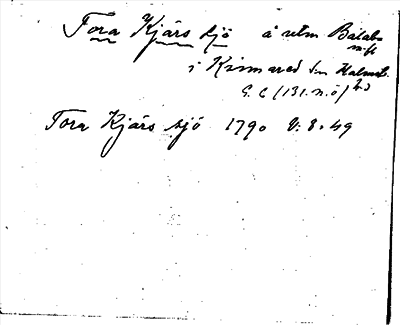 Tora Kjärs sjö å utm Bälabo
i Kinnared sn Halmst.
G. C (131. n. ö)
Tora Kjärs sjö 1790 V: 8. 49